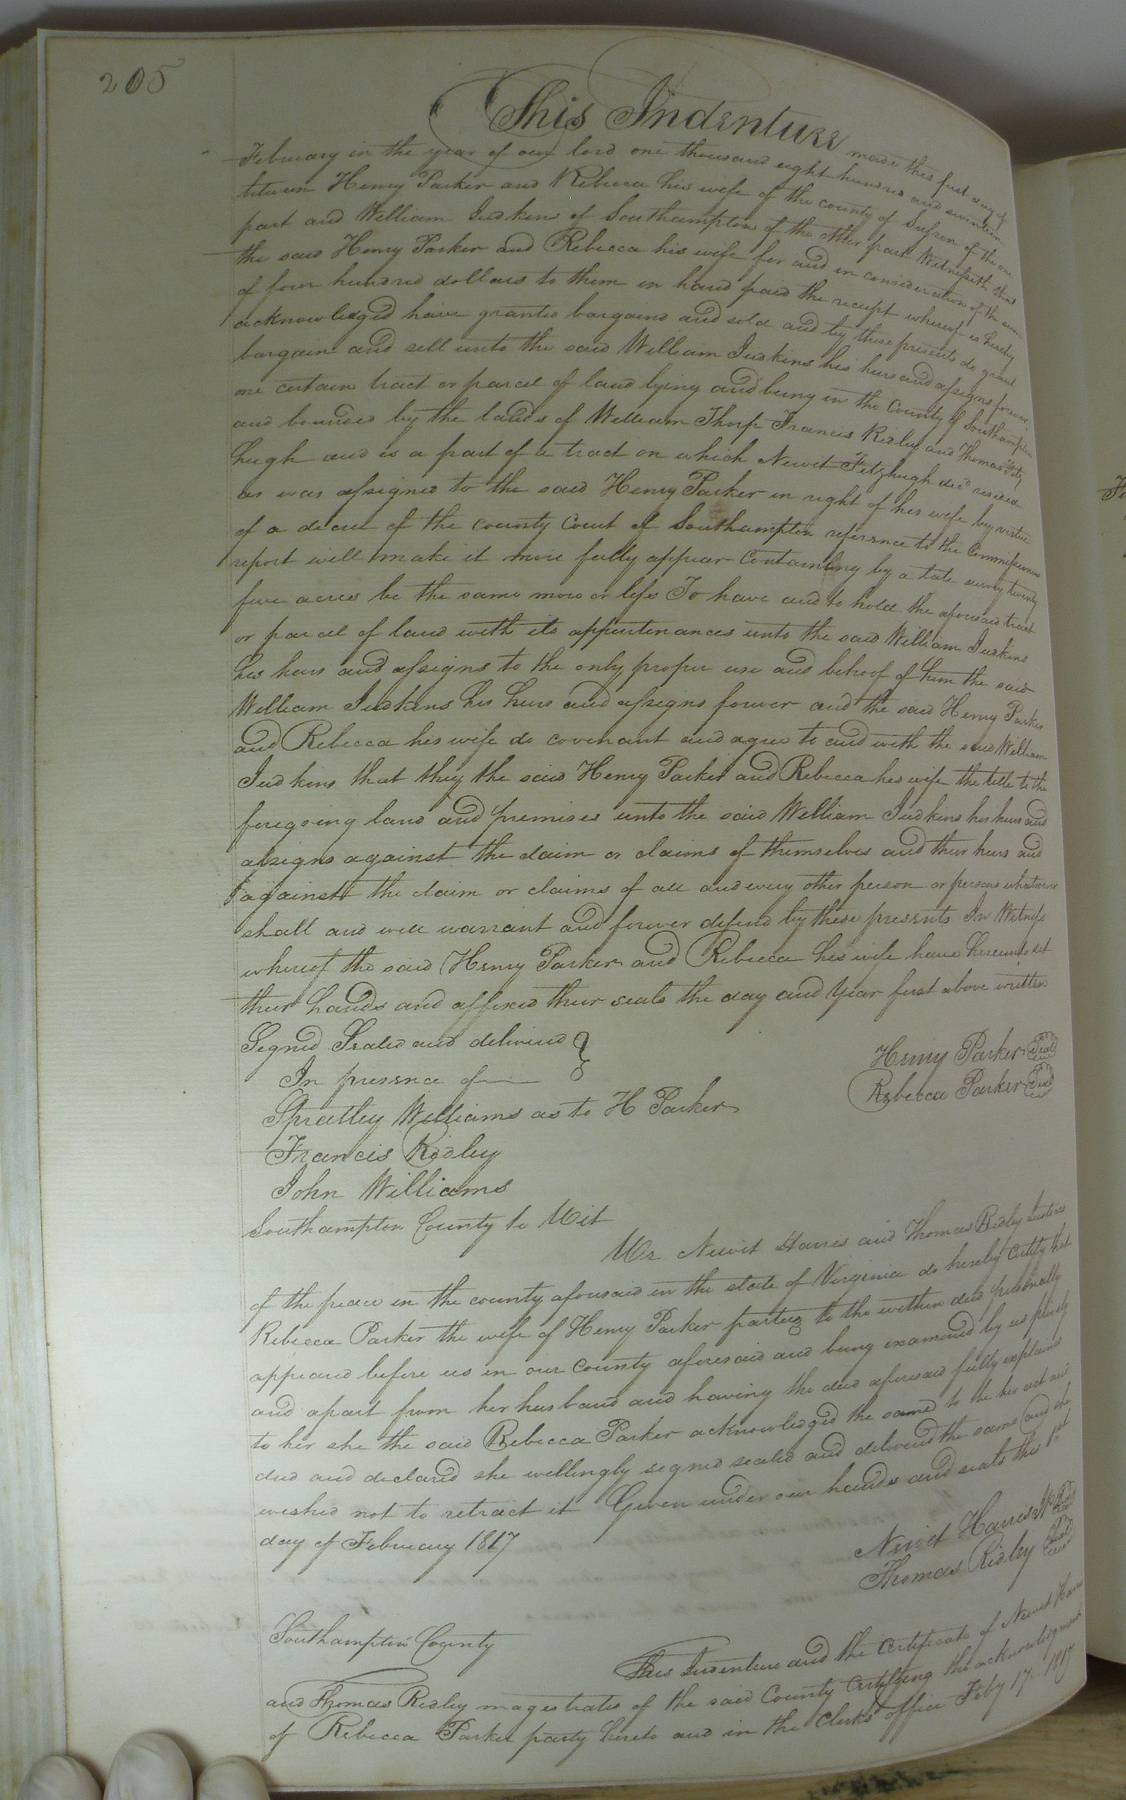 205
This Indenture made this first day of
February in the year of our lord one thousand eight hundred and seventeen
between Henry Parker and Rebecca his wife of the county of Sufson of the one
part and William Judkins of Southampton of the other part Witnesseth that
the said Henry Parker and Rebecca his wife for and in consideration of the sum
of four hundred dollars to them in hand paid the receipt whereof is hereby
acknowledged have granted bargained and sold and by these presents do grant
bargain and sell unto the said William Judkins his heirs and assigns forever
one certain tract or parcel of land lying and being in the County of Southampton
and bounded by the lands of William Thorp Francis Ridley and Thomas Fitz
hugh and is a part of a tract on which Newit Fitzhugh decd resided
as was assigned to the said Henry Parker in right of his wife by virtue
of a decree of the county Court of Southampton reference to the Commissioners
report will make it more fully appear Containing by a late survey twenty
five acres be the same more or less To have and to hold the aforesaid tract
or parcel of land with its appurtenances unto the said William Judkins
his heirs and assigns to the only proper use and behoof of him the said
William Judkins his heirs and assigns forever and the said Henry Parker
and Rebecca his wife do covenant and agree to and with the said William
Judkins that they the said Henry Parker and Rebecca his wife the title to the
foregoing land and premises unto the said William Judkins his heirs and
assigns against the claim or claims of themselves and their heirs and
against the claim or claims of all and every other person or persons whatsoever
shall and will warrant and forever defend by these presents In Witness
whereof the said Henry Parker and Rebecca his wife have hereunto set
their hands and affixed their seals the day and year first above written
Signed Sealed and delivered
In presence of
Henry Parker Seal
Rebecca Parker Seal
Spratley Williams as to H Parker
Francis Ridley
John Williams
Southampton County to Wit
We Newit Harris and Thomas Ridley Justices
of the peace in the county aforesaid in the state of Virginia do hereby certify that
Rebecca Parker the wife of Henry Parker parties to the within deed personally
appeared before us in our county aforesaid and being examined by us privily
and apart from her husband and having the deed aforesaid fully explained
to her she the said Rebecca Parker acknowledged the same to be her act and
deed and declared she willingly signed sealed and delivered the same and she
wished not to retract it Given under our hands and seals this 1st
day of February 1817
Newit Harris Seal
Thomas Ridley Seal
Southampton County
This Indenture and the Certificate of Newit Harris
and Thomas Ridley magestrates of the said County Certifying the acknowledgment
of Rebecca Parker party hereto and in the Clerks office Feby 17 1817